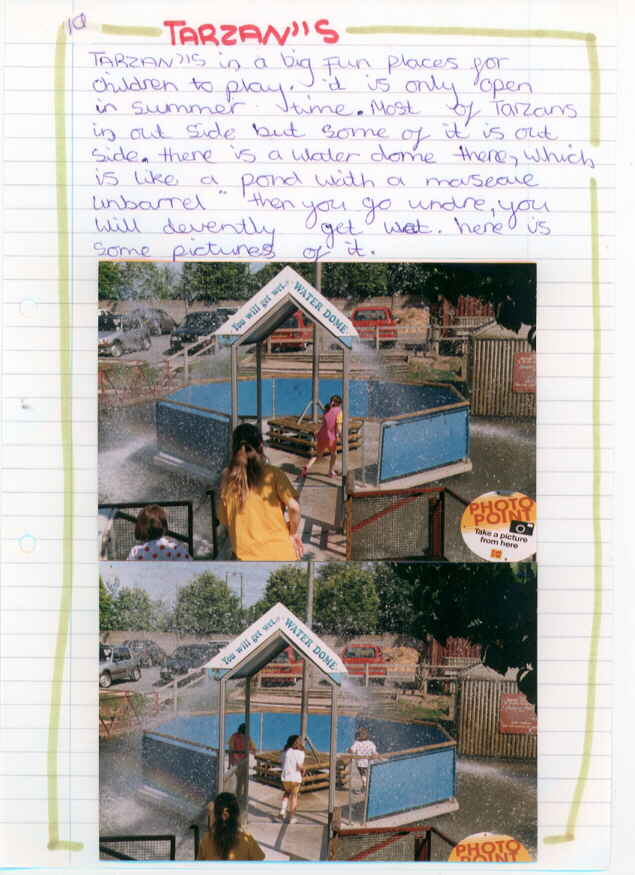 10
TARZAN"S
TARZAN"S is a big Fun places for
children to play. it is only open
in summer time. Most of Tarzans
is out side but some of it is out
side. there is a water dome there, which
is like a pond with a maseave
unbarrel" then you go undre, you
will devently get wet. here is
some pictures of it.
You will get wet..
WATER DOME
PHOTO
POINT
Take a picture
from here
You will get wet..
WATER DOME
PHOTO
POINT